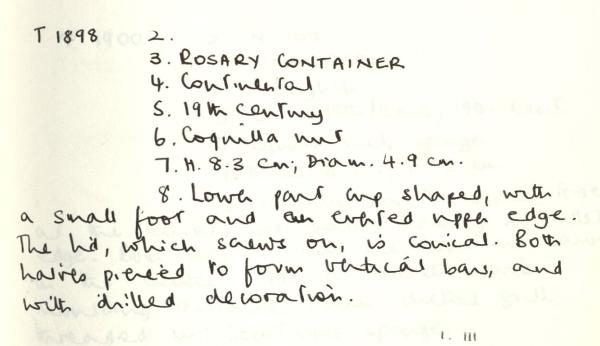 T 1898 2.
3. ROSARY CONTAINER
4. Continental
5. 19th century
6. Coquilla nut
7. H. 8.3 cm; Diam. 4.9 cm.
8. Lower part cup shaped, with
a small foot and everted upper edge.
The lid, which screws on, is conical. Both
halves pierced to form vertical bars, and
with drilled decoration.
1. III